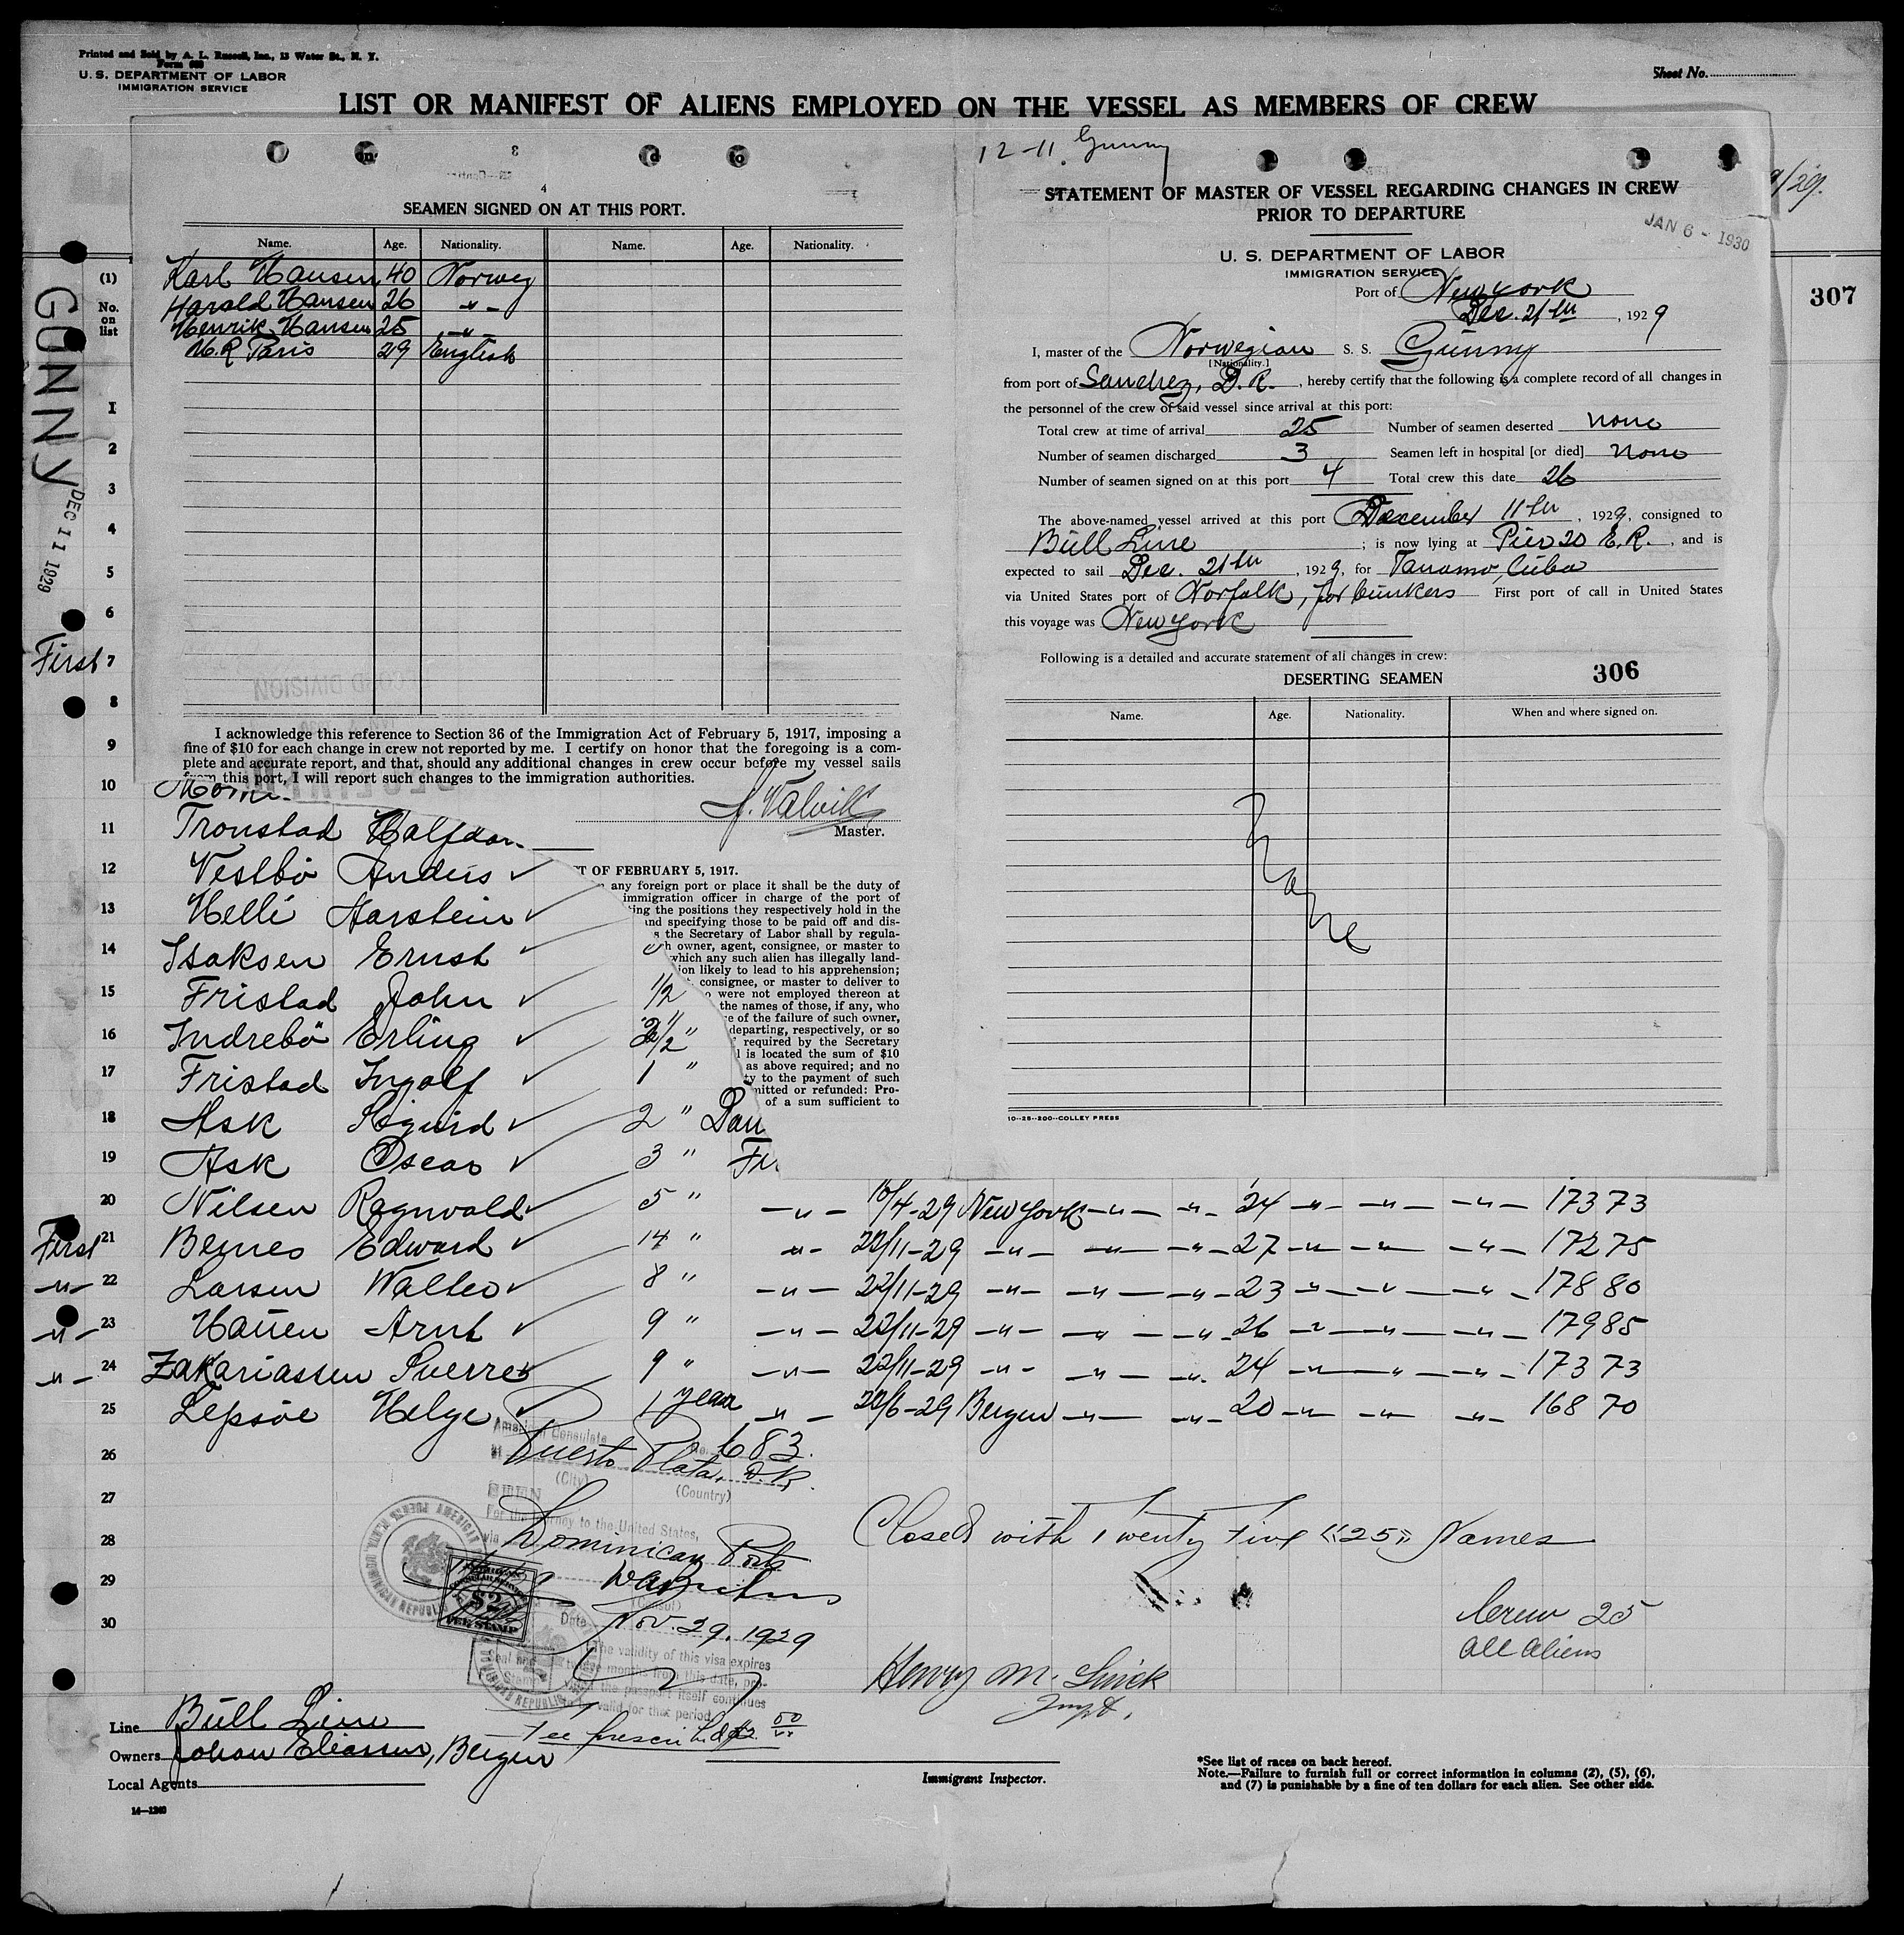 Printed and Sold by A. L. Russell, Inc., 13 Water St., N. Y.
Form 680
U. S. DEPARTMENT OF LABOR
IMMIGRATION SERVICE
Sheet No.
LIST OR MANIFEST OF ALIENS EMPLOYED ON THE VESSEL AS MEMBERS OF CREW
4
SEAMEN SIGNED ON AT THIS PORT.
Name. Age. Nationality. Name. Age. Nationality.
Karl Hansen 40 Norweg
Harald Hansen 26 -"-
Henrik Hansen 25 -"-
H. R Paris 29 English
I acknowledge this reference to Section 36 of the Immigration Act of February 5, 1917, imposing a
fine of $10 for each change in crew not reported by me. I certify on honor that the foregoing is a com-
plete and accurate report, and that, should any additional changes in crew occur before my vessel sails
from this port, I will report such changes to the immigration authorities.
Master.
T OF FEBRUARY 5, 1917.
any foreign port or place it shall be the duty of
immigration officer in charge of the port of
ting the positions they respectively hold in the
and specifying those to be paid off and dis-
s the Secretary of Labor shall by regula-
h owner, agent, consignee, or master to
which any such alien has illegally land-
ion likely to lead to his apprehension;
consignee, or master to deliver to
o were not employed thereon at
the names of those, if any, who
e of the failure of such owner,
departing, respectively, or so
required by the Secretary
l is located the sum of $10
as above required; and no
ty to the payment of such
mitted or refunded: Pro-
of a sum sufficient to
12-11. Gunny
STATEMENT OF MASTER OF VESSEL REGARDING CHANGES IN CREW
PRIOR TO DEPARTURE
JAN 6 - 1930
9/29.
U. S. DEPARTMENT OF LABOR
IMMIGRATION SERVICE
Port of New York
Dec. 21th, 1929
I, master of the Norwegian S. S. Gunny
[Nationality.]
from port of Sanchez, D. R., hereby certify that the following is a complete record of all changes in
the personnel of the crew of said vessel since arrival at this port:
Total crew at time of arrival 25 Number of seamen deserted none
Number of seamen discharged 3 Seamen left in hospital [or died] none
Number of seamen signed on at this port 4 Total crew this date 26
The above-named vessel arrived at this port December 11th, 1929, consigned to
Bull Line; is now lying at Pier 20 E. R., and is
expected to sail Dec. 21th, 1929, for Tanamo, Cuba
via United States port of Norfolk, for bunkers First port of call in United States
this voyage was New York
Following is a detailed and accurate statement of all changes in crew:
DESERTING SEAMEN 306
Name. Age. Nationality. When and where signed on.
None
10--25--200--COLLEY PRESS
307
GUNNY
DEC 11 1929
(1)
No.
on
list
1
2
3
4
5
6
First 7
8
9
10
11 Tronstad Halfdan
12 Vestbö Anders
13 Helli Aarstein
14 Isaksen Ernst
15 Fristad John 1/2
16 Indrebö Erling 2 1/2 "
17 Fristad Ingolf 1 "
18 Ask Sigurd 2 "
19 Ask Oscar 3 "
20 Nilsen Ragnvald 5 " -"- 10/4-29 New York -"- -"- 24 -"- -"- -"- 173 73
First 21 Bernes Edward 14 " -"- 22/11-29 -"- -"- -"- 27 -"- -"- -"- 172 75
-"- 22 Larsen Walter 8 " -"- 22/11-29 -"- -"- -"- 23 -"- -"- -"- 178 80
-"- 23 Hauen Arnt 9 " -"- 22/11-29 -"- -"- -"- 26 -"- -"- -"- 179 85
-"- 24 Zakariassen Sverre 9 " -"- 22/11-29 -"- -"- -"- 24 -"- -"- -"- 173 73
25 Lepsöe Helge 1 year -"- 22/6-29 Bergen -"- -"- 20 -"- -"- -"- 168 70
26
27
28
29
30
American Consulate No. 683.
at Puerto Plata, D. R.
(City) (Country)
For the journey to the United States,
via Dominican Ports
(Consul)
Date Nov. 29. 1929
The validity of this visa expires
months from this date, pro-
the passport itself continues
valid for that period.
Fee prescribed $2.00
$2
FEE STAMP
Closed with Twenty Five «25» Names
Crew 25
all aliens
Line Bull Line
Owners Johan Eliassen, Bergen
Local Agents
14—1240
Immigrant Inspector.
*See list of races on back hereof.
Note.—Failure to furnish full or correct information in columns (2), (5), (6),
and (7) is punishable by a fine of ten dollars for each alien. See other side.